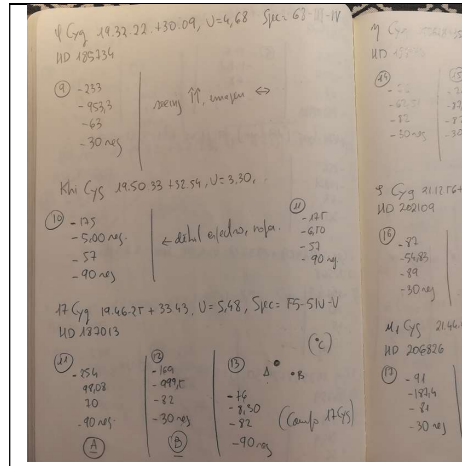 φ Cyg 19.37.22. +30.09, V=4,68 Spec= G8-III-IV
HD 185734
⑨ -233
-953,3
-63
-30 neg
seeing ⇈, imagen ⇔
Khi Cyg 19.50.33 +32.54, V=3.30,
⑩ -175
-5,00 neg.
-57
-90 neg
⑪ -175
-6,50
-57
-90 neg
17 Cyg 19.46.25 +33.43, V=5,48, Spec= F5-5IV-V
HD 187013
⑪ -254
98,08
20
-90 neg.
Ⓐ
⑫ -169
-999,5
-82
-30 neg
Ⓑ
⑬ -76
-8,30
-82
-90 neg
A
•B
(•C)
(Campo 17 Cyg)
η Cyg
HD
⑭
-82
-30 neg
⑮
Cyg 21.12.56+
HD 202109
⑯ -87
-54,83
-89
-30 neg
μ1 Cyg 21.44.
HD 206826
⑰ -91
-187,4
-81
-30 neg